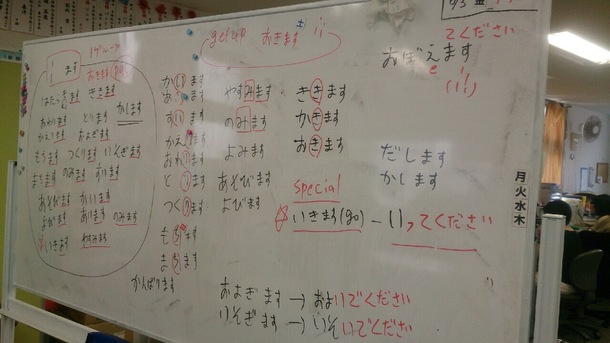 get up おきます
てください
おぼえます
e
い ます
1グループ
はたらきます ききます
あいます とります かします
かえります およぎます
もちます つくります いそぎます
まちます のみます すいます
あそびます かいます
よびます あいます のみます
いきます やすみます
かいます
あいます
すいます
かえります
おわります
とります
つくります
もちます
まちます
がんばります
やすみます
のみます
よみます
あそびます
よびます
ききます
かきます
おきます
だします
かします
special
いきます(go) - いってください
およぎます → およいでください
いそぎます → いそいでください
月
火
水
木